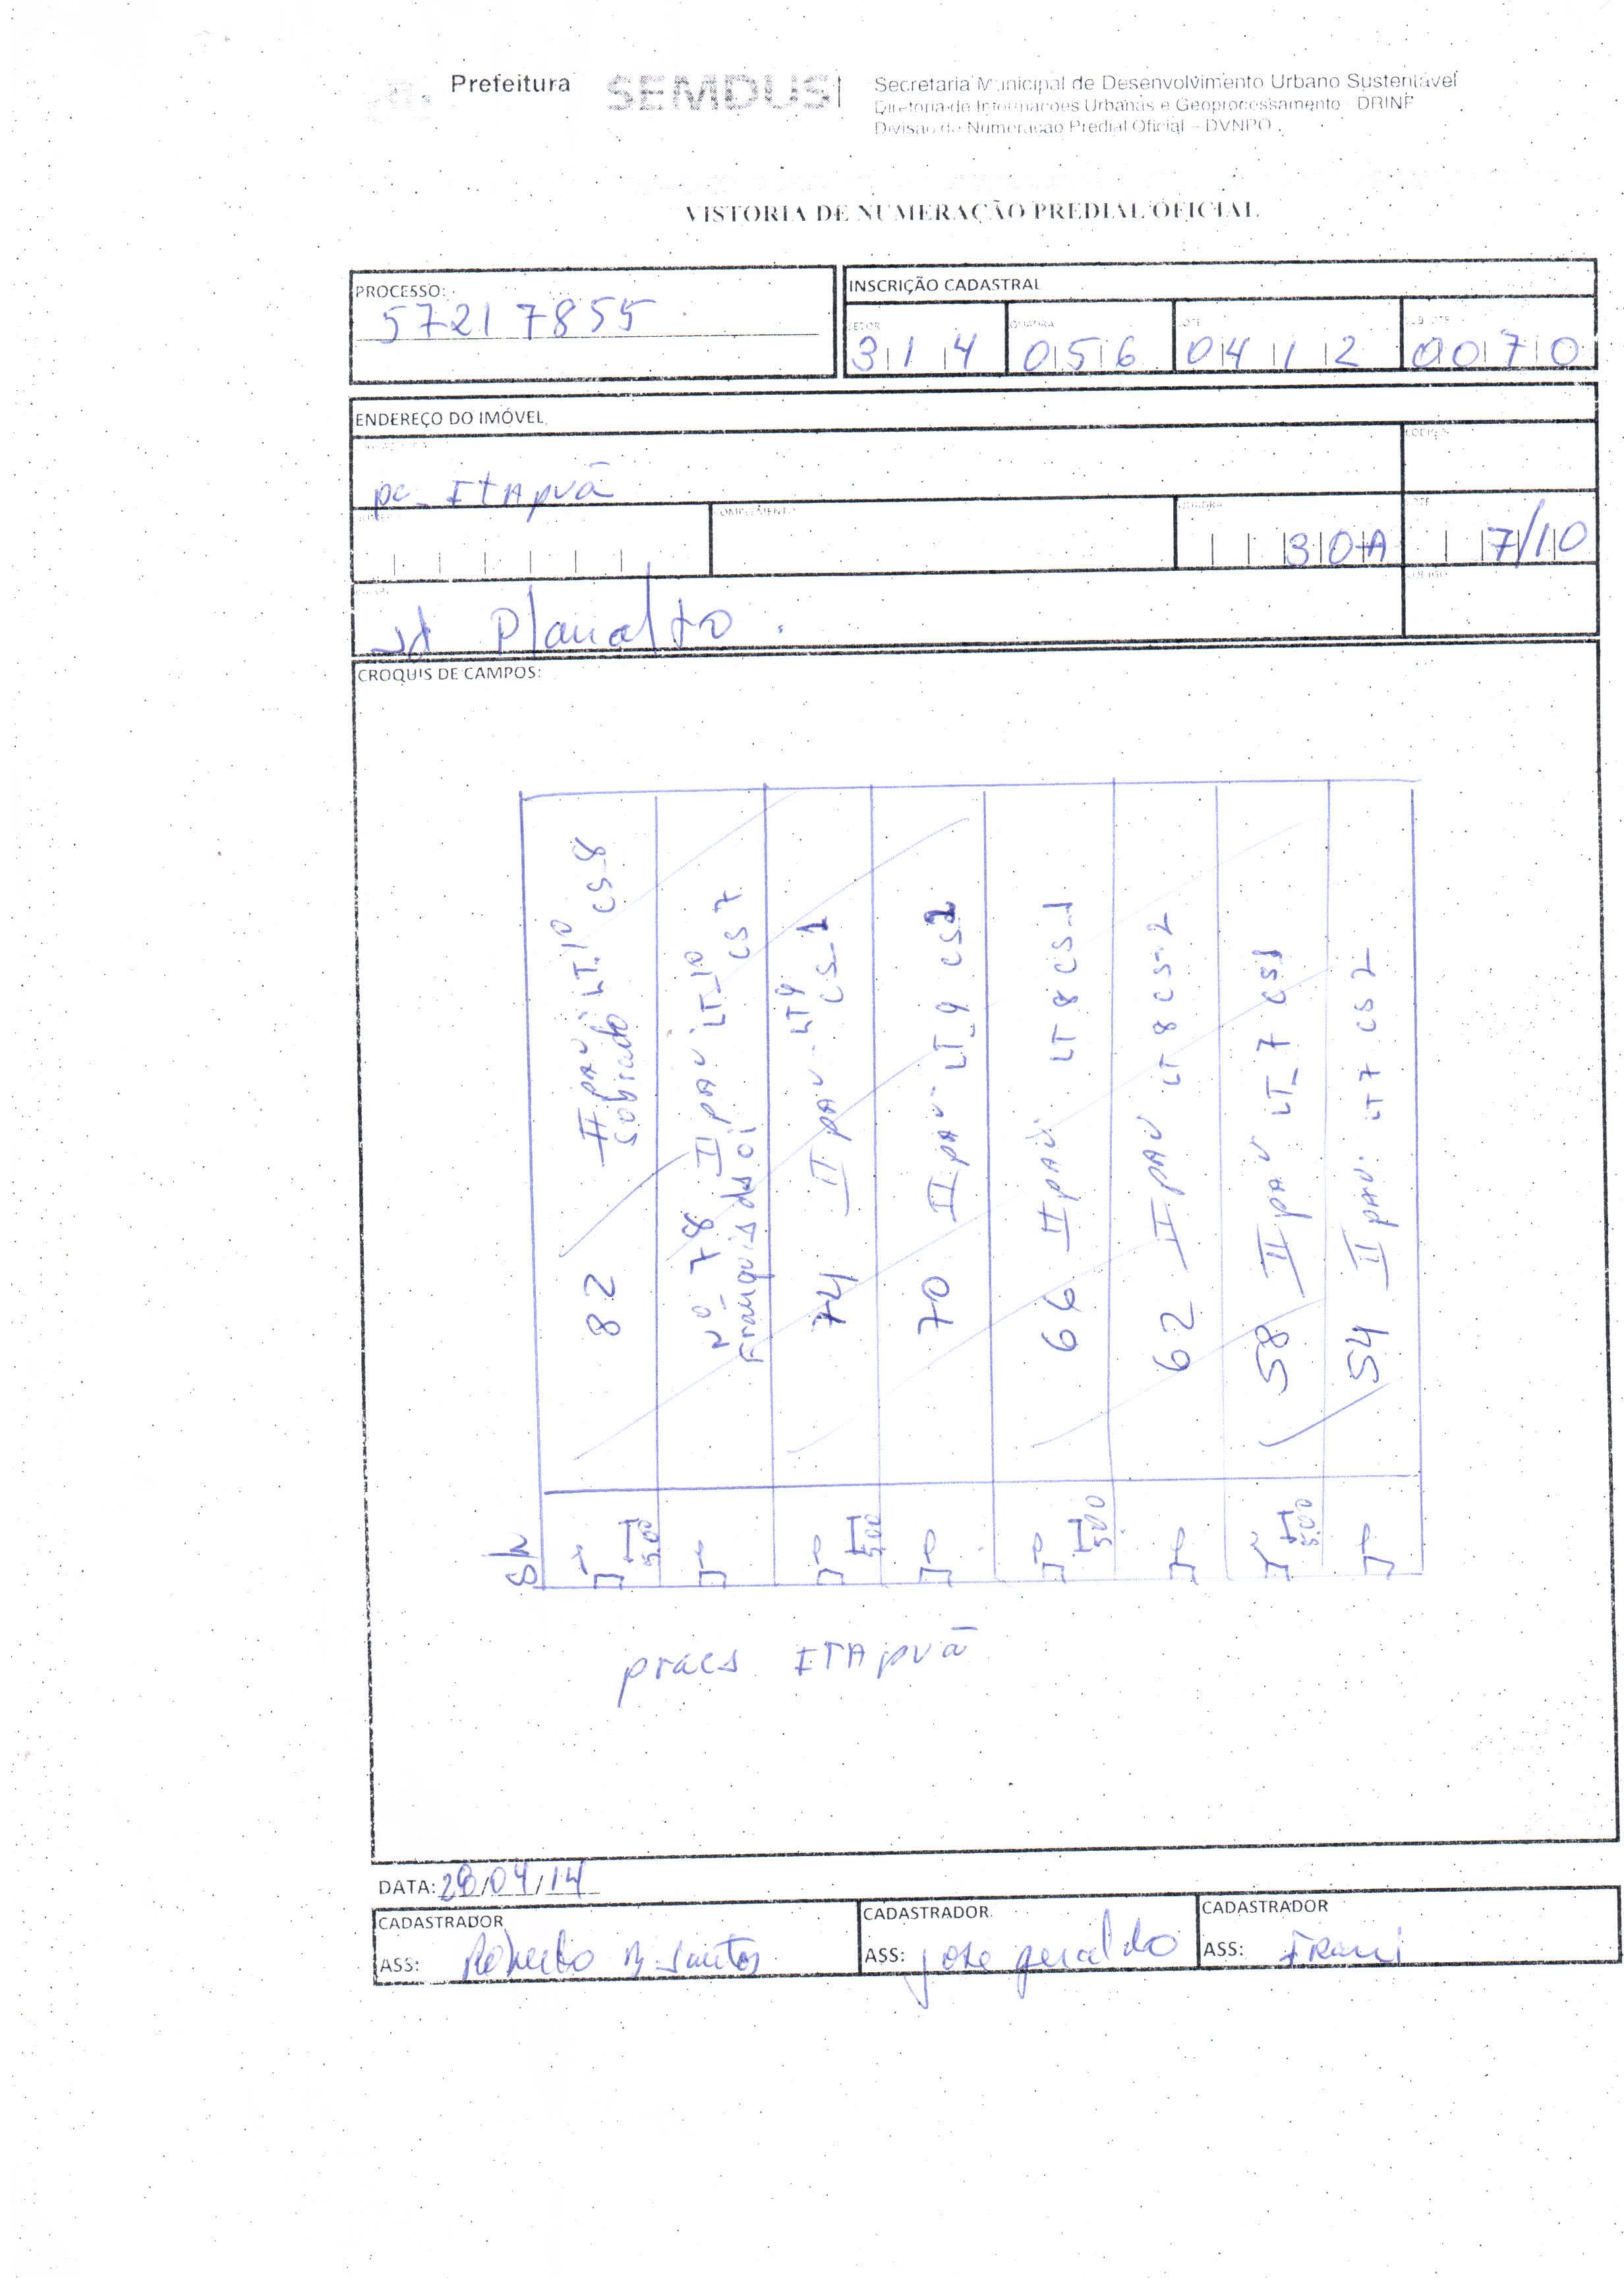 Prefeitura SEMDUS Secretaria Municipal de Desenvolvimento Urbano Sustentável
Diretoria de Informações Urbanas e Geoprocessamento - DRINF
Divisão de Numeração Predial Oficial - DVNPO
VISTORIA DE NUMERAÇÃO PREDIAL OFICIAL
PROCESSO:
57217855
INSCRIÇÃO CADASTRAL
SETOR QUADRA LOTE SUB LOTE
314 056 0412 0070
ENDEREÇO DO IMÓVEL
pc- ITApvã
COMPLEMENTO QUADRA LOTE
30A 7/10
Jd Planalto.
CROQUIS DE CAMPOS:
82 II pAv LT.10 cs-8
sobrado
Nº 78 II pAv LT-10 cs 7
74 II pAv. LT9 cs-1
70 II pAv. LT-9 cs2
66 II pAv. LT 8 cs-1
62 II pAv LT 8 cs-2
58 II pAv LT-7 cs1
54 II pAv. LT 7 cs 2
5.00 5.00 5.00 5.00
ITApvã
DATA: 28/04/14
CADASTRADOR CADASTRADOR CADASTRADOR
ASS: Roberto M. Santos ASS: jose geraldo ASS: Irani